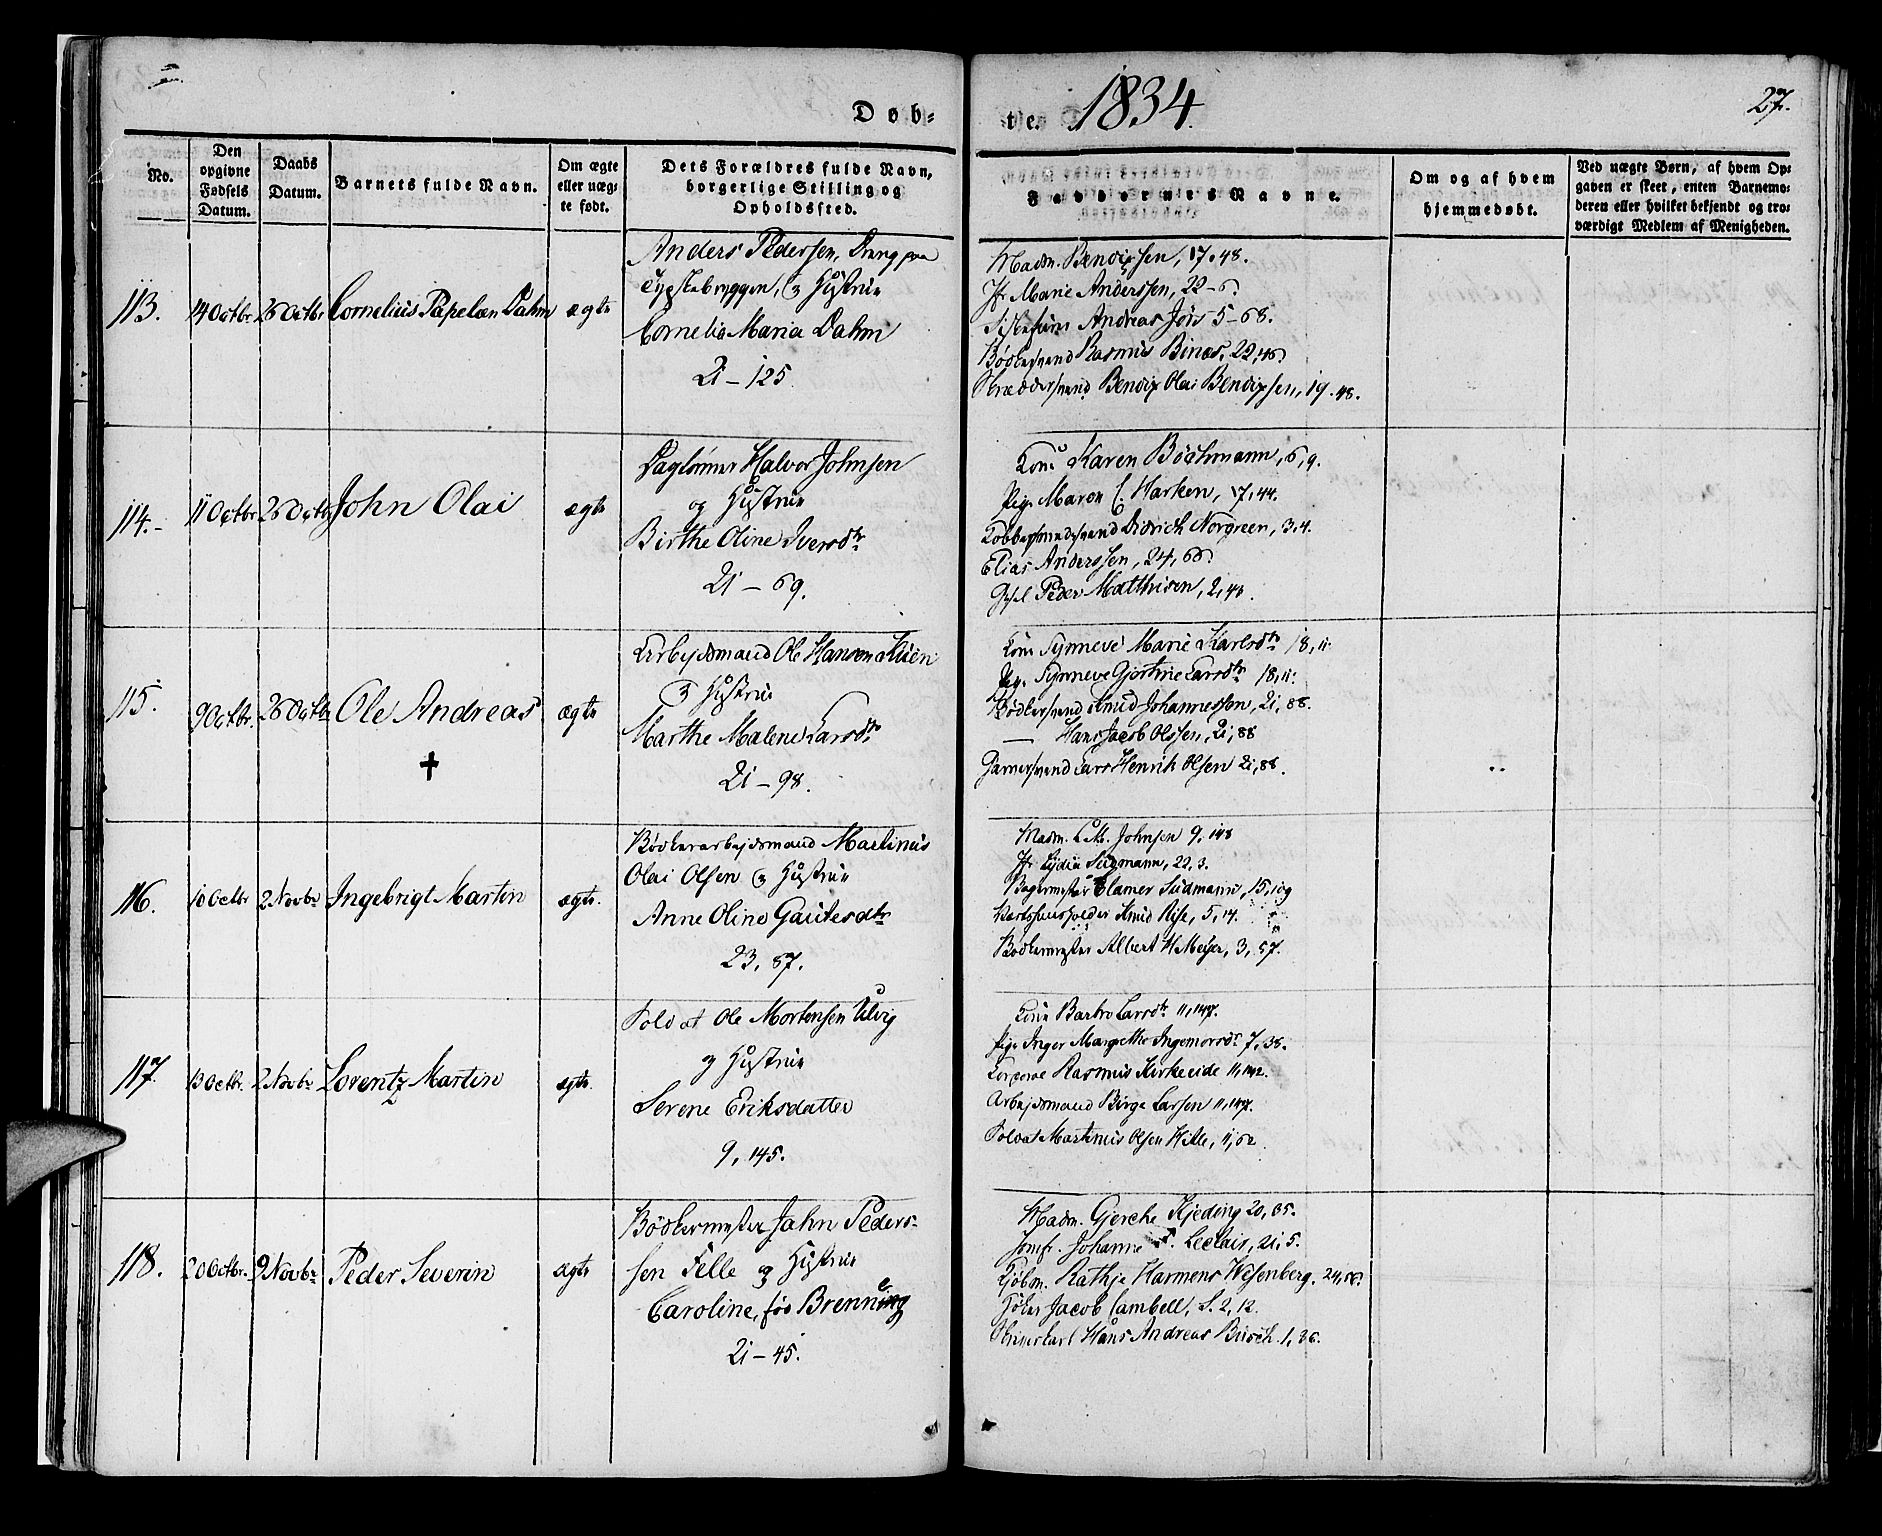 Døb-
te. 1834.
27.
No.
Den opgivne Fødsels Datum.
Daabs Datum.
Barnets fulde Navn.
Om ægte eller uæg-
te født.
Dets Forældres fulde Navn,
borgerlige Stilling og
Opholdssted.
Faddernes Navne.
Om og af hvem
hjemmedøbt.
Ved uægte Børn, af hvem Op-
gaven er skeet, enten Barnemo-
deren eller hvilket bekjendt og tro-
værdigt Medlem af Menigheden.
113.
14 Octbr
26 Octbr
Cornelius Dahm
ægte
Anders Pedersen, Dreng paa
Tydskebryggen, og Hustrue
Cornelia Maria Dahm
21 - 125
Madm. Bendixsen, 17, 48.
Jfr Marie Anderssen, 22-6.
Andreas 5-68.
Bødkersvend Rasmus 22, 46.
Skræddersvend Bendix Olai Bendixsen, 19. 48.
114.-
11 Octbr
26 Octbr
John Olai
ægte
Daglønner Halvor Johnsen
og Hustrue
Birthe Oline Iversdtr
21 - 69.
Kone Karen Bøchmann, 6, 9.
Pige Maren C. Harken, 17, 44.
Kobbersmedsvend Didrich Norgreen, 3, 4.
Elias Anderssen, 24, 66.
Peder Matthisen, 2, 43.
115.
9 Octbr.
26 Octbr
Ole Andreas
†
ægte
Arbejdsmand Ole Hansen
og Hustrue
Marthe Malene Larsdtr
21 - 98.
Kone Synneve Marie Karlsdtr 18, 11.
Pige Synneve Gjertine Larsdtr 18, 11.
Bødkersvend Knud Johannessen, 21, 88.
— Hans Jacob Olssen, 21, 88
Garversvend Lars Henrik Olsen 21, 88.
116.
10 Octbr
2 Novbr
Ingebrigt Martin
ægte.
Bødkerarbejdsmand Martinus
Olai Olsen og Hustrue
Anne Oline Gautesdtr
23, 87.
Madm. Johnsen 9, 148
Jfr Lydia Südmann, 22, 3.
Bagermester Clamer Südmann, 15, 109
Vertshuusholder Knud Rise, 5, 14.
Bødkermester Albert H Meyer, 3, 57.
117.
13 Octbr.
2 Novbr
Lorentz Martin
ægte.
Soldat Ole Mortensen Ulvig
og Hustrue
Serene Eriksdatter
9, 145.
Kone Barbro Larsdtr 11, 147.
Pige Inger Margrethe Ingemorsdtr 7, 38.
Corporal Rasmus Kirkeeide 11, 142.
Arbejdsmand Birge Larsen 11, 147.
Soldat Martinus Olsen Hille, 11, 62.
118.
20 Octbr.
9 Novbr
Peder Severin
ægte
Bødkermester Jahn Peders-
sen Felle og Hustrue
Caroline, fød Brenning
21 - 45.
Madm. Gjerche Kjeding 20, 35.
Jomfr. Johanne Leclair, 21, 5.
Kjøbm. Rathje Harmens Wesenberg. 24, 56.
Jacob Cambell, S. 2, 12.
Hans Andreas Busch. 1, 36.